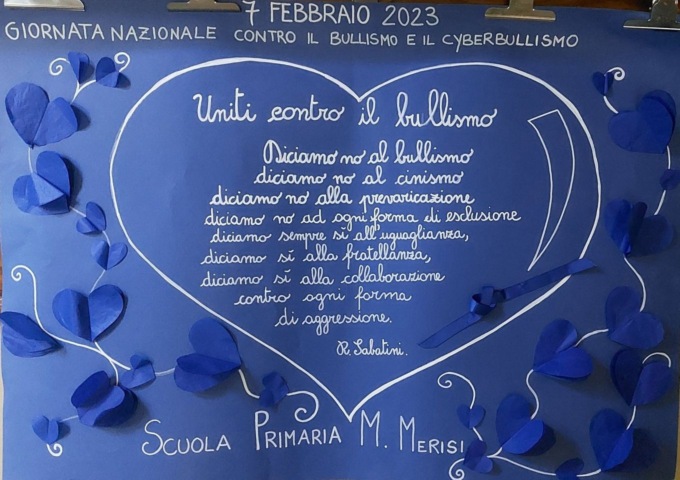 7 FEBBRAIO 2023
GIORNATA NAZIONALE CONTRO IL BULLISMO E IL CYBERBULLISMO
Uniti contro il bullismo
Diciamo no al bullismo
diciamo no al cinismo
diciamo no alla prevaricazione
diciamo no ad ogni forma di esclusione
diciamo sempre sì all'uguaglianza,
diciamo sì alla fratellanza,
diciamo sì alla collaborazione
contro ogni forma
di aggressione.
R. Sabatini.
SCUOLA PRIMARIA M. MERISI